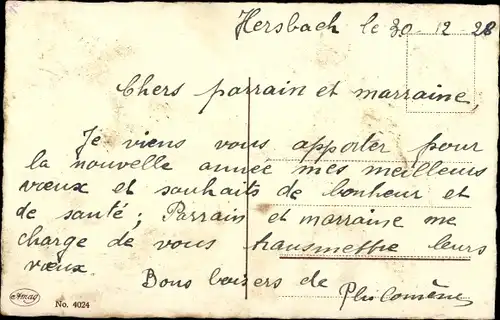 Hersbach le 30 12 28
Chers parrain et marraine,
Je viens vous apporter pour
la nouvelle année mes meilleurs
vœux et souhaits de bonheur et
de santé; Parrain et marraine me
charge de vous transmettre leurs
vœux.
Bons baisers de Philomène
Amag
No. 4024